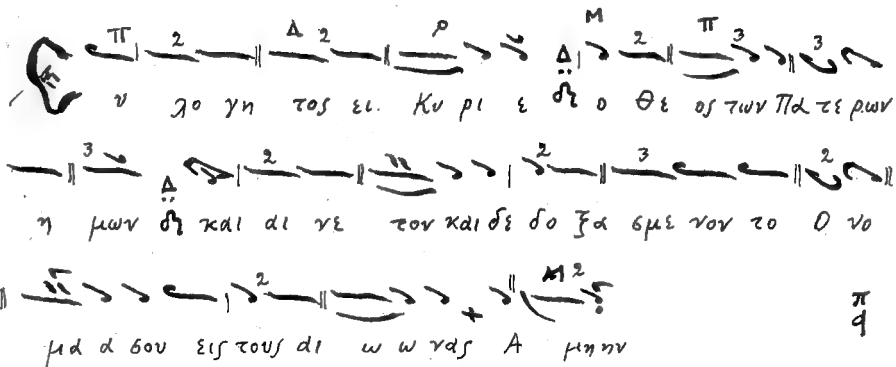 Ευ λο γη τος ει. Κυ ρι ε ο Θε ος των Πα τε ρων
η μων και αι νε τον και δε δο ξα σμε νον το Ο νο
μα α σου εις τους αι ω ω νας Α μη ην